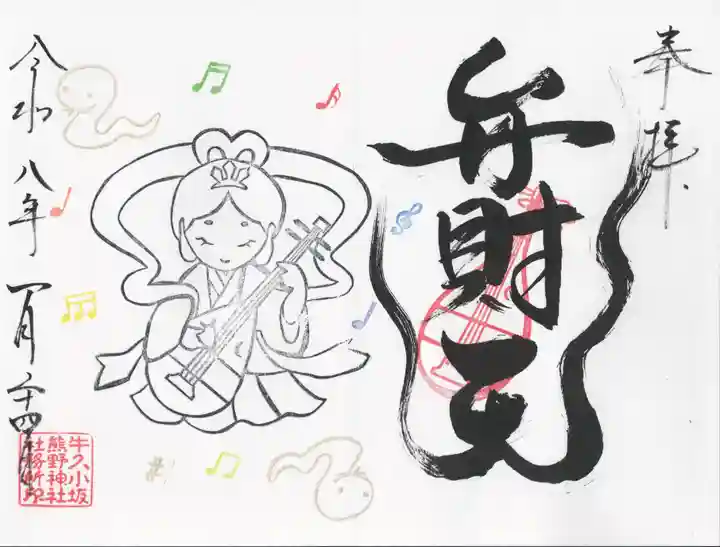 奉拝
弁財天
令和八年一月二十四日
牛久小坂
熊野神社
社務所印